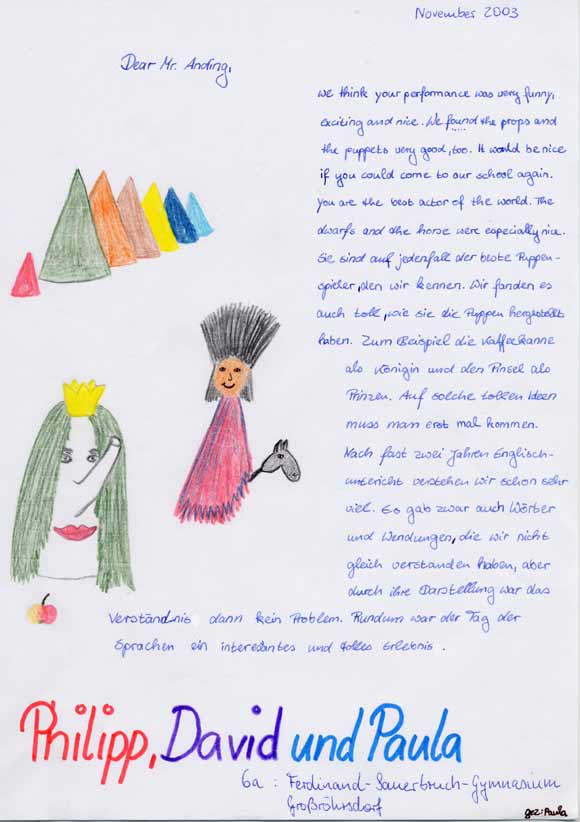 November 2003
Dear Mr. Anding,
we think your performance was very funny,
exciting and nice. We found the props and
the puppets very good, too. It would be nice
if you could come to our school again.
You are the best actor of the world. The
dwarfs and the horse were especially nice.
Sie sind auf jedenfall der beste Puppen-
spieler, den wir kennen. Wir fanden es
auch toll, wie sie die Puppen hergestellt
haben. Zum Beispiel die Kaffeekanne
als Königin und den Pinsel als
Prinzen. Auf solche tollen Ideen
muss man erst mal kommen.
Nach fast zwei Jahren Englisch-
unterricht verstehen wir schon sehr
viel. Es gab zwar auch Wörter
und Wendungen, die wir nicht
gleich verstanden haben, aber
durch ihre Darstellung war das
Verständnis dann kein Problem. Rundum war der Tag der
Sprachen ein interesantes und tolles Erlebnis.
Philipp, David und Paula
6a : Ferdinand-Sauerbruch-Gymnasium
Großröhrsdorf
gez: Paula